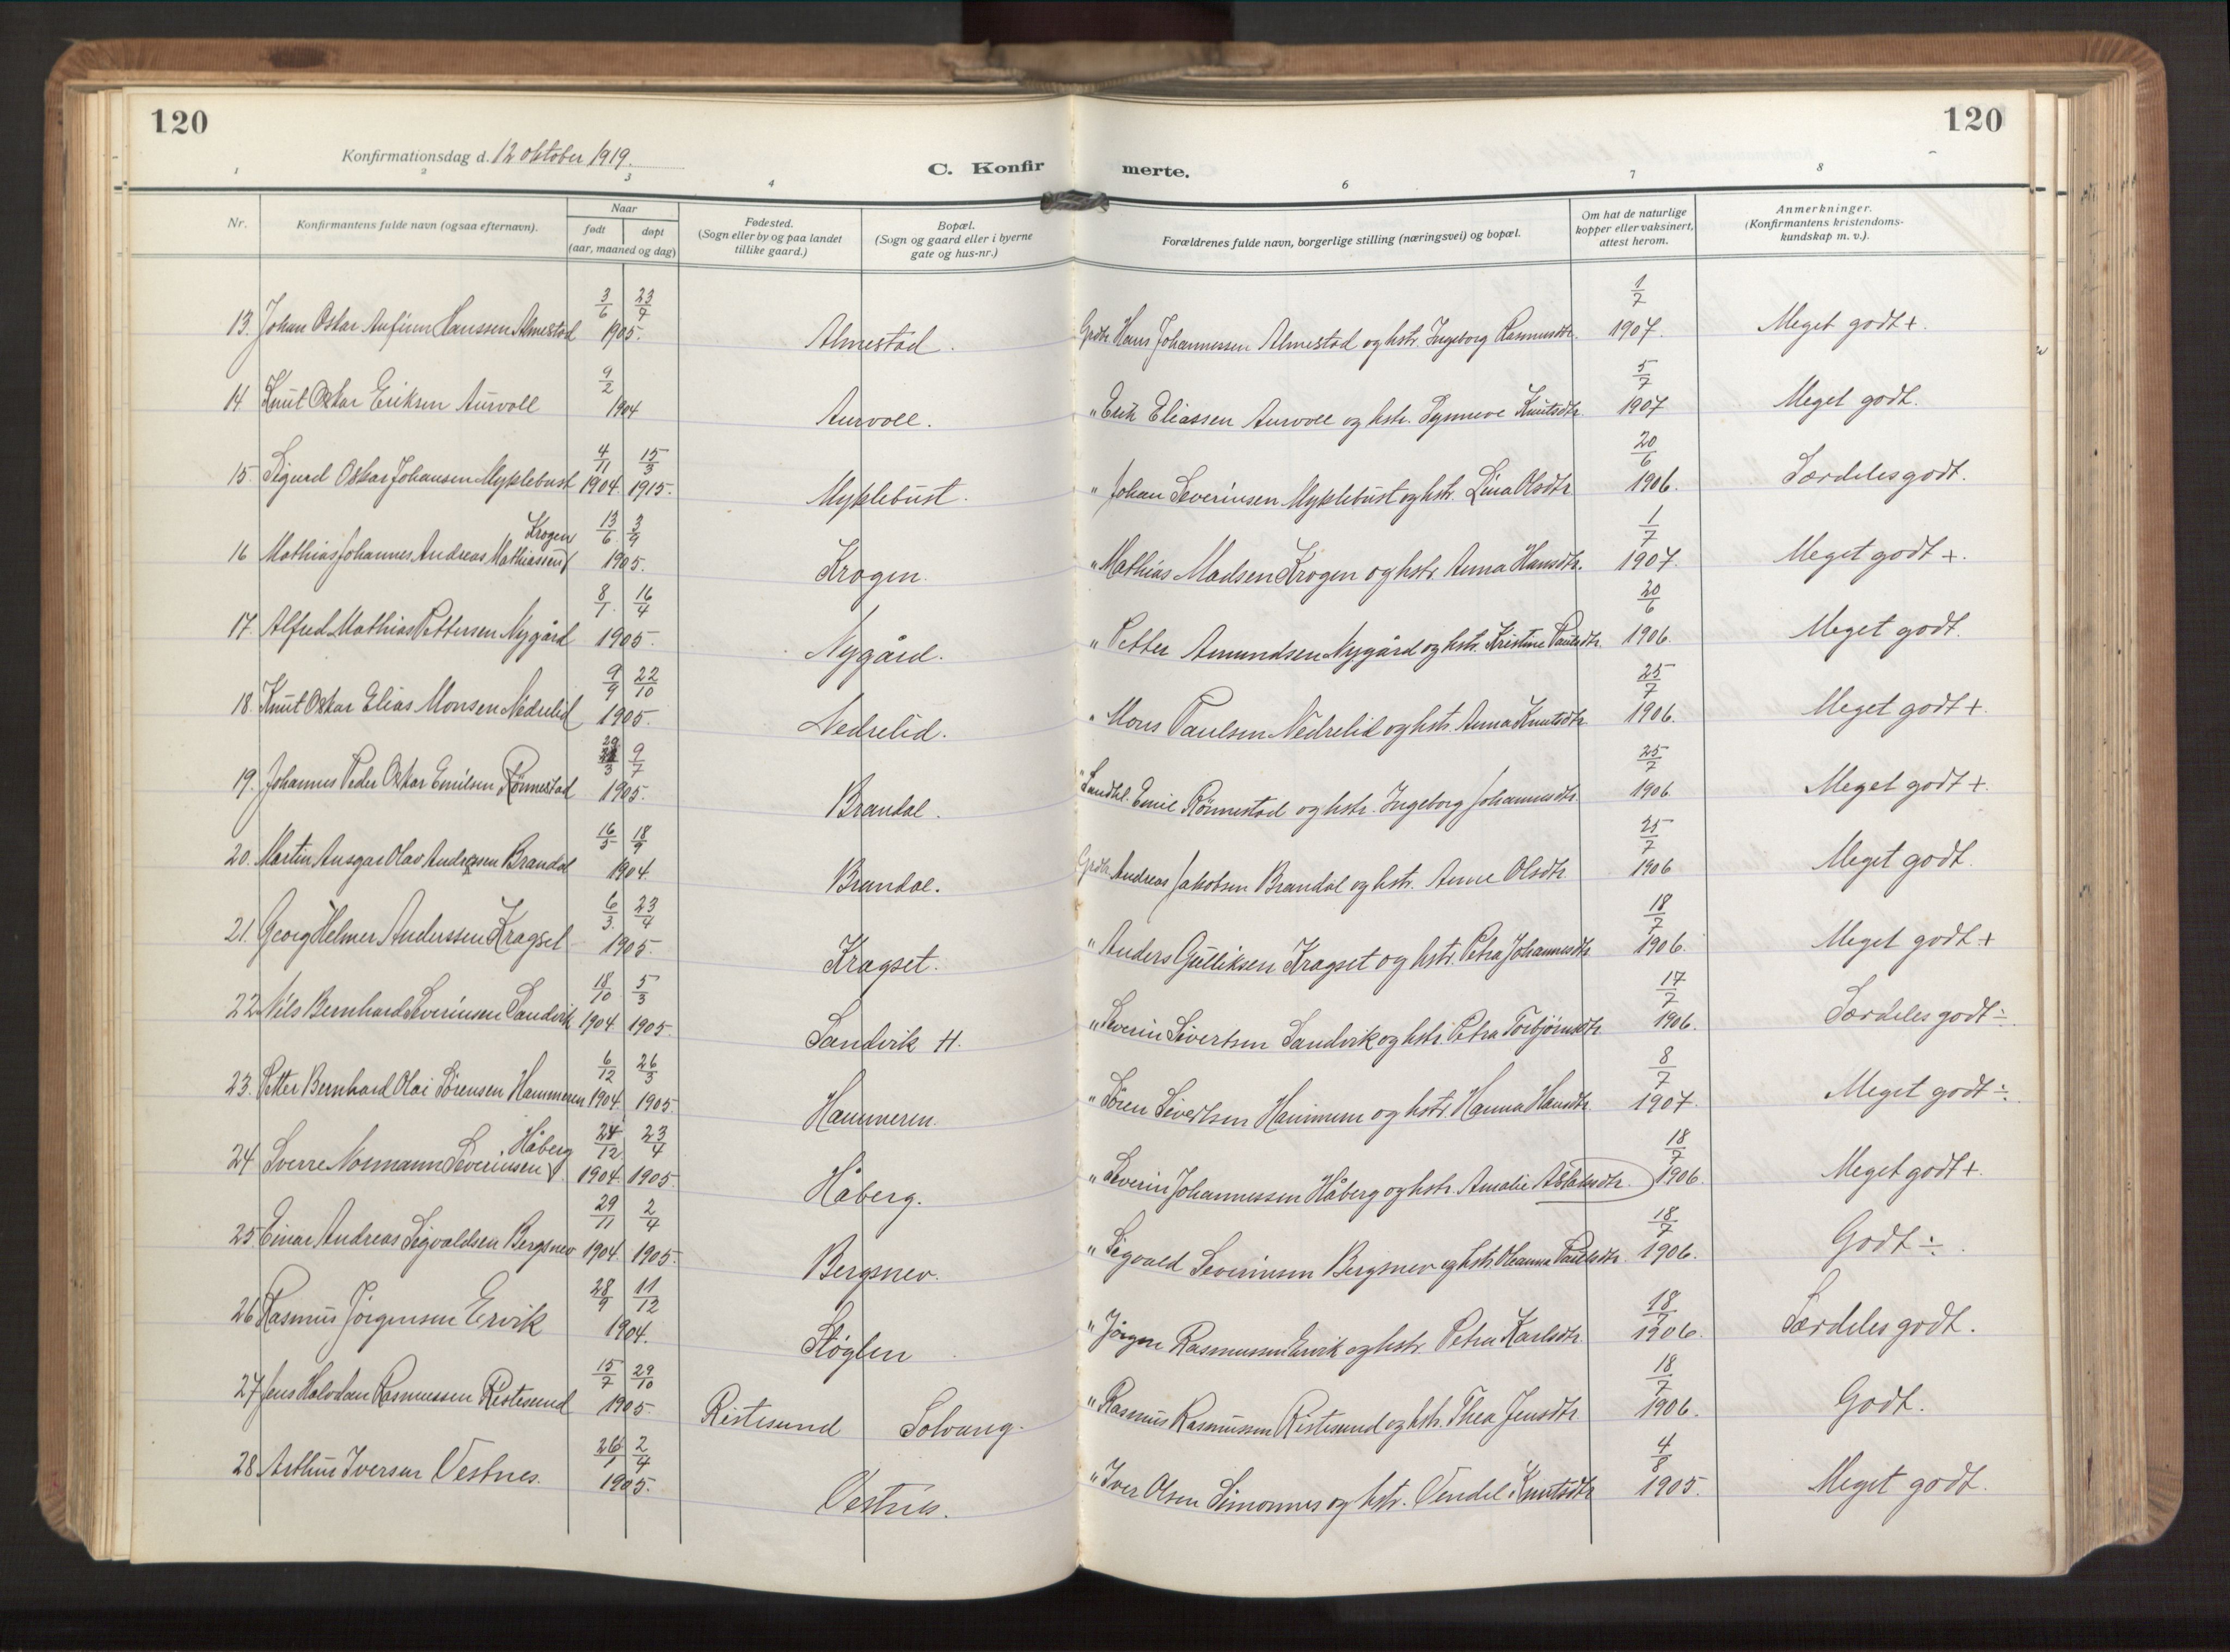 120
120
Konfirmationsdag d. 12 oktober 1919.
C. Konfir merte.
1 2 3 4 6 7 8
Nr.
Konfirmantens fulde navn (ogsaa efternavn).
Naar
født døpt
(aar, maaned og dag)
Fødested.
(Sogn eller by og paa landet
tillike gaard.)
Bopæl.
(Sogn og gaard eller i byerne
gate og hus-nr.)
Forældrenes fulde navn, borgerlige stilling (næringsvei) og bopæl.
Om hat de naturlige
kopper eller vaksinert,
attest herom.
Anmerkninger.
(Konfirmantens kristendoms-
kundskap m. v.).
13. Johan Oskar Anfinn Hanssen Almestad 3/6 23/7 1905. Almestad. Grdbr. Hans Johannessen Almestad og hstr. Ingeborg Rasmusdtr. 1/7 1907. Meget godt +.
14 Knut Oskar Eriksen Aurvoll 9/2 1904 Aurvoll. " Erik Eliassen Aurvoll og hstr. Synneve Knutsdtr. 5/7 1907 Meget godt.
15. Sigurd Oskar Johansen Myklebust 4/11 1904 15/3 1915. Myklebust. " Johan Severinsen Myklebust og hstr. Lina Olsdtr. 20/6 1906. Særdeles godt.
16 Mathias Johannes Andreas Mathiassen Krogen 13/6 3/9 1905. Krogen. " Mathias Madsen Krogen og hstr. Anna Hansdtr. 1/7 1907. Meget godt +.
17. Alfred Mathias Pettersen Nygård 8/1 16/4 1905. Nygård. " Petter Amundsen Nygård og hstr. Kristine Paulsdtr. 20/6 1906. Meget godt.
18. Knut Oskar Elias Monsen Nedrelid 9/9 22/10 1905. Nedrelid. " Mons Paulsen Nedrelid og hstr. Anna Knutsdtr. 25/7 1906. Meget godt +
19. Johannes Peder Oskar Emilsen Rönnestad 29/3 9/7 1905. Brandal. " Landhl. Emil Rönnestad og hstr. Ingeborg Johannesdtr. 25/7 1906. Meget godt +.
20. Martin Ansgar Olav Andreassen Brandal 16/5 18/9 1904. Brandal. Grdbr. Andreas Jakobsen Brandal og hstr. Anne Olsdtr. 25/7 1906 Meget godt.
21. Georg Helmer Anderssen Kragset 6/3. 23/4 1905. Kragset. " Anders Gulliksen Kragset og hstr. Petra Johannesdtr. 18/7 1906. Meget godt +
22. Nils Bernhard Severinsen Sandvik 18/10 1904 5/3 1905. Sandvik H. " Severin Sivertsen Sandvik og hstr. Petra Torbjörnsdtr. 17/7 1906. Særdeles godt ÷
23. Petter Bernhard Olai Sörensen Hammeren 6/12 1904. 26/3 1905. Hammeren. " Sören Sivertsen Hammeren og hstr. Hanna Hansdtr. 8/7 1907. Meget godt ÷
24. Sverre Normann Severinsen Håberg 24/12 1904. 23/4 1905. Håberg. " Severin Johannessen Håberg og hstr. Amalie 18/7 1906. Meget godt +.
25. Einar Andreas Sigvaldsen Bergsnev 29/11 1904. 2/4 1905. Bergsnev. " Sigvald Severinsen Bergsnev og hstr. Oleanna Paulsdtr. 18/7 1906. Godt ÷.
26. Rasmus Jörgensen Ervik 28/9 11/12 1904. Støylen. " Jörgen Rasmussen Ervik og hstr. Petra Karlsdtr. 18/7 1906. Særdeles godt.
27. Jens Halvdan Rasmussen Ristesund 15/7 29/10 1905. Ristesund Solvang. " Rasmus Rasmussen Ristesund og hstr. Thea Jensdtr. 18/7 1906. Godt.
28. Arthur Iversen Vestnes. 26/1 2/4 1905. Vestnes. " Iver Olsen Simonnes og hstr. Vendel Knutsdtr. 4/8 1905. Meget godt.